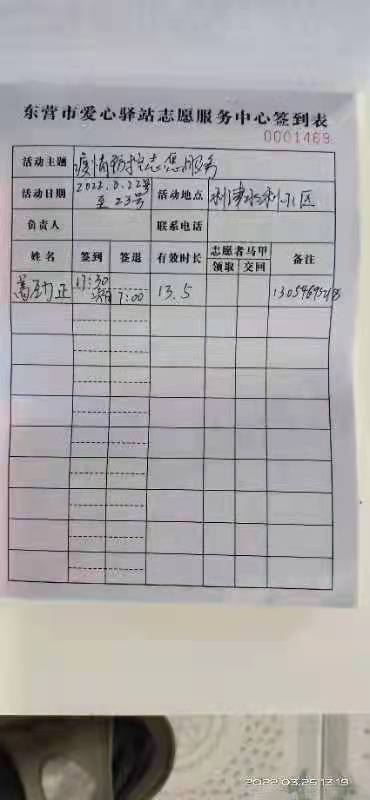 东营市爱心驿站志愿服务中心签到表
0001469
活动主题 疫情防控志愿服务
活动日期 2022.3.22号至23号 活动地点 利津水利小区
负责人 联系电话
姓名 签到 签退 有效时长 志愿者马甲 备注
领取 交回
17:30 7:00 13.5
2022.03.25 13:19